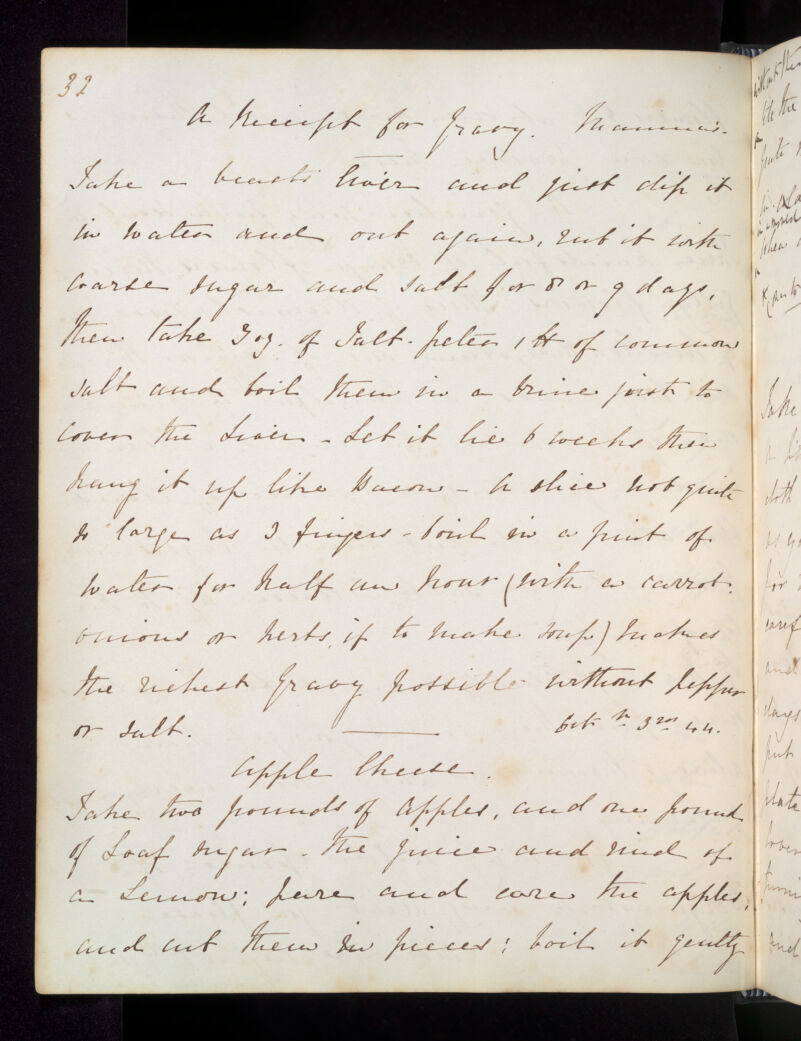 32
A Receipt for Gravy. Mamma's.
Take a beasts liver and just dip it
in water and out again, rub it with
coarse sugar and salt for 8 or 9 days,
then take 3 oz. of Salt-peter 1 lb of common
salt and boil them in a brine just to
cover the Liver - Let it lie 6 weeks then
hang it up like Bacon - A slice not quite
so large as 3 fingers - boil in a pint of
water for half an hour (with a carrot.
onions or herbs, if to make soup) makes
the richest Gravy possible without pepper
or salt. Oct 3rd 44.
Apple Cheese.
Take two pounds of Apples, and one pound
of Loaf sugar - the juice and rind of
a Lemon; pare and core the apples,
and cut them in pieces: boil it gently